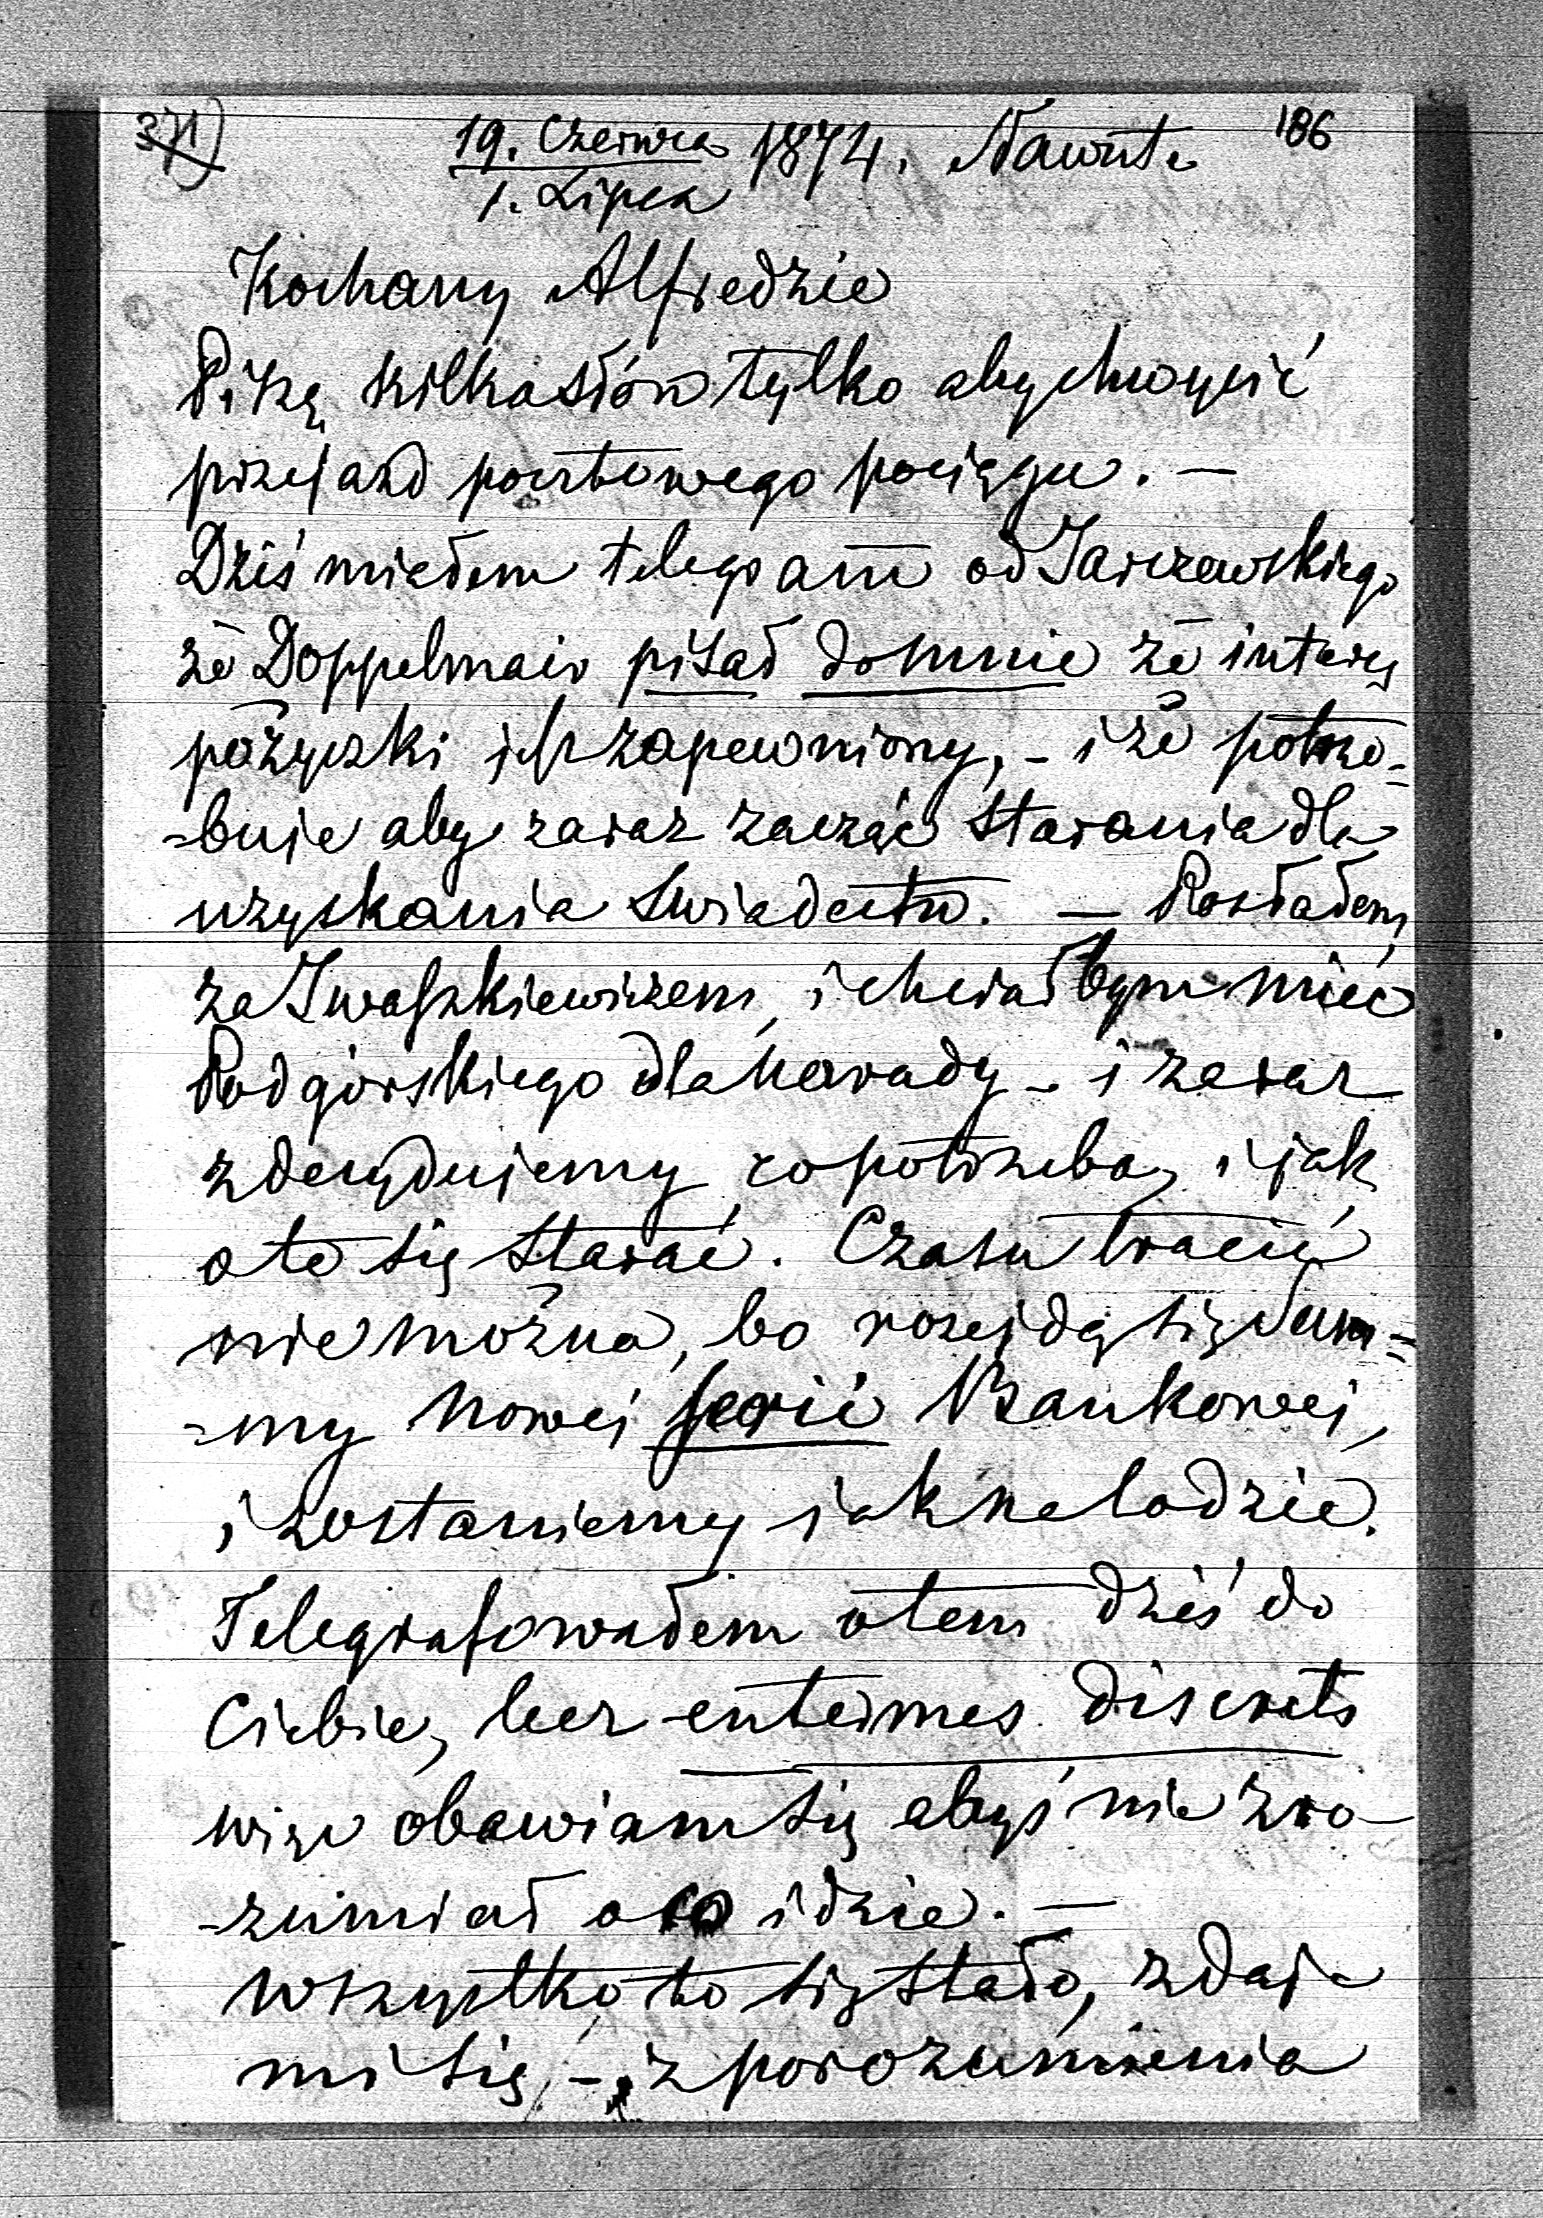 371)
186
19. Czerwca 1874. Nawut.
1. Lipca
Kochany Alfredzie
Piszę kilka słów tylko aby chwycić
przejazd pocztowego pociągu. —
Dziś miałem telegram od Jarczewskiego
że Doppelmair pisał do mnie że interes
pożyczki jest zapewniony, - i że potrze=
=buje aby zaraz zacząć starania dla
uzyskania swiadectw. — Posłałem
za Iwaszkiewiczem, i chciałbym mieć
Podgórskiego dla narady - i zaraz
zdecydujemy co potrzeba, i jak
o to się starać. Czasu tracić
nie można, bo rozejdą się sum=
=my nowej serii Bankowej,
i zostaniemy jak na lodzie.
Telegrafowałem o tem dziś do
Ciebie, lecz en termes discrets
więc obawiam się abyś nie zro-
-zumiał o co idzie. —
Wszystko to się stało, zdaje
mi się, - z porozumienia